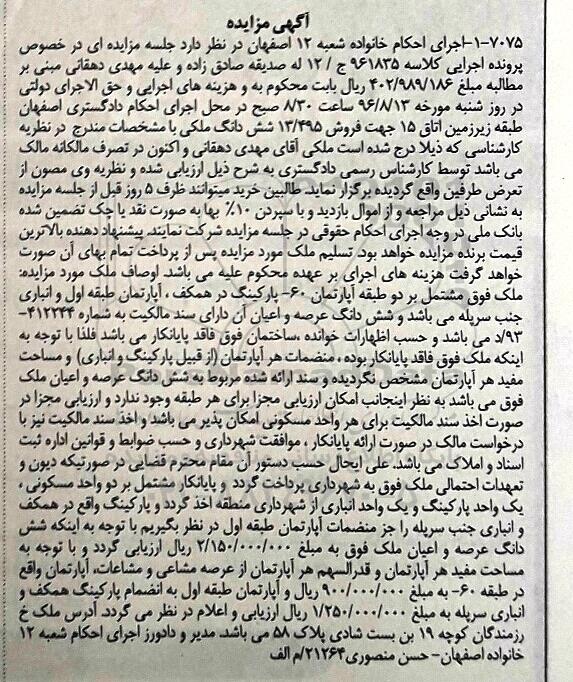 آگهی مزایده
۷۰۷۵-۱-اجرای احکام خانواده شعبه ۱۲ اصفهان در نظر دارد جلسه مزایده ای در خصوص
پرونده اجرایی کلاسه ۹۶۱۸۳۵ ج / ۱۲ له صدیقه صادق زاده و علیه مهدی دهقانی مبنی بر
مطالبه مبلغ ۴۰۲/۹۸۹/۱۸۶ ریال بابت محکوم به و هزینه های اجرایی و حق الاجرای دولتی
در روز شنبه مورخه ۹۶/۸/۱۳ ساعت ۸/۳۰ صبح در محل اجرای احکام دادگستری اصفهان
طبقه زیرزمین اتاق ۱۵ جهت فروش ۱۳/۴۹۵ شش دانگ ملکی با مشخصات مندرج در نظریه
کارشناسی که ذیلا درج شده است ملکی آقای مهدی دهقانی و اکنون در تصرف مالکانه مالک
می باشد توسط کارشناس رسمی دادگستری به شرح ذیل ارزیابی شده و نظریه وی مصون از
تعرض طرفین واقع گردیده برگزار نماید. طالبین خرید میتوانند ظرف ۵ روز قبل از جلسه مزایده
به نشانی ذیل مراجعه و از اموال بازدید و با سپردن ۱۰٪ بها به صورت نقد یا چک تضمین شده
بانک ملی در وجه اجرای احکام حقوقی در جلسه مزایده شرکت نمایند. پیشنهاد دهنده بالاترین
قیمت برنده مزایده خواهد بود. تسلیم ملک مورد مزایده پس از پرداخت تمام بهای آن صورت
خواهد گرفت هزینه های اجرای بر عهده محکوم علیه می باشد. اوصاف ملک مورد مزایده:
ملک فوق مشتمل بر دو طبقه آپارتمان ۶۰- پارکینگ در همکف ، آپارتمان طبقه اول و انباری
جنب سرپله می باشد و شش دانگ عرصه و اعیان آن دارای سند مالکیت به شماره ۴۱۲۲۴۴-
۹۳/د می باشد و حسب اظهارات خوانده ،ساختمان فوق فاقد پایانکار می باشد فلذا با توجه به
اینکه ملک فوق فاقد پایانکار بوده ، منضمات هر آپارتمان (از قبیل پارکینگ و انباری) و مساحت
مفید هر آپارتمان مشخص نگردیده و سند ارائه شده مربوط به شش دانگ عرصه و اعیان ملک
فوق می باشد به نظر اینجانب امکان ارزیابی مجزا برای هر طبقه وجود ندارد و ارزیابی مجزا در
صورت اخذ سند مالکیت برای هر واحد مسکونی امکان پذیر می باشد و اخذ سند مالکیت نیز با
درخواست مالک در صورت ارائه پایانکار ، موافقت شهرداری و حسب ضوابط و قوانین اداره ثبت
اسناد و املاک می باشد. علی ایحال حسب دستور آن مقام محترم قضایی در صورتیکه دیون و
تعهدات احتمالی ملک فوق به شهرداری پرداخت گردد و پایانکار مشتمل بر دو واحد مسکونی ،
یک واحد پارکینگ و یک واحد انباری از شهرداری منطقه اخذ گردد و پارکینگ واقع در همکف
و انباری جنب سرپله را جز منضمات آپارتمان طبقه اول در نظر بگیریم با توجه به اینکه شش
دانگ عرصه و اعیان ملک فوق به مبلغ ۲/۱۵۰/۰۰۰/۰۰۰ ریال ارزیابی گردد و با توجه به
مساحت مفید هر آپارتمان و قدرالسهم هر آپارتمان از عرصه مشاعی و مشاعات، آپارتمان واقع
در طبقه ۶۰- به مبلغ ۹۰۰/۰۰۰/۰۰۰ ریال و آپارتمان طبقه اول به انضمام پارکینگ همکف و
انباری سرپله به مبلغ ۱/۲۵۰/۰۰۰/۰۰۰ ریال ارزیابی و اعلام در نظر می گردد. آدرس ملک خ
رزمندگان کوچه ۱۹ بن بست شادی پلاک ۵۸ می باشد. مدیر و دادورز اجرای احکام شعبه ۱۲
خانواده اصفهان- حسن منصوری۲۱۲۶۴/م الف